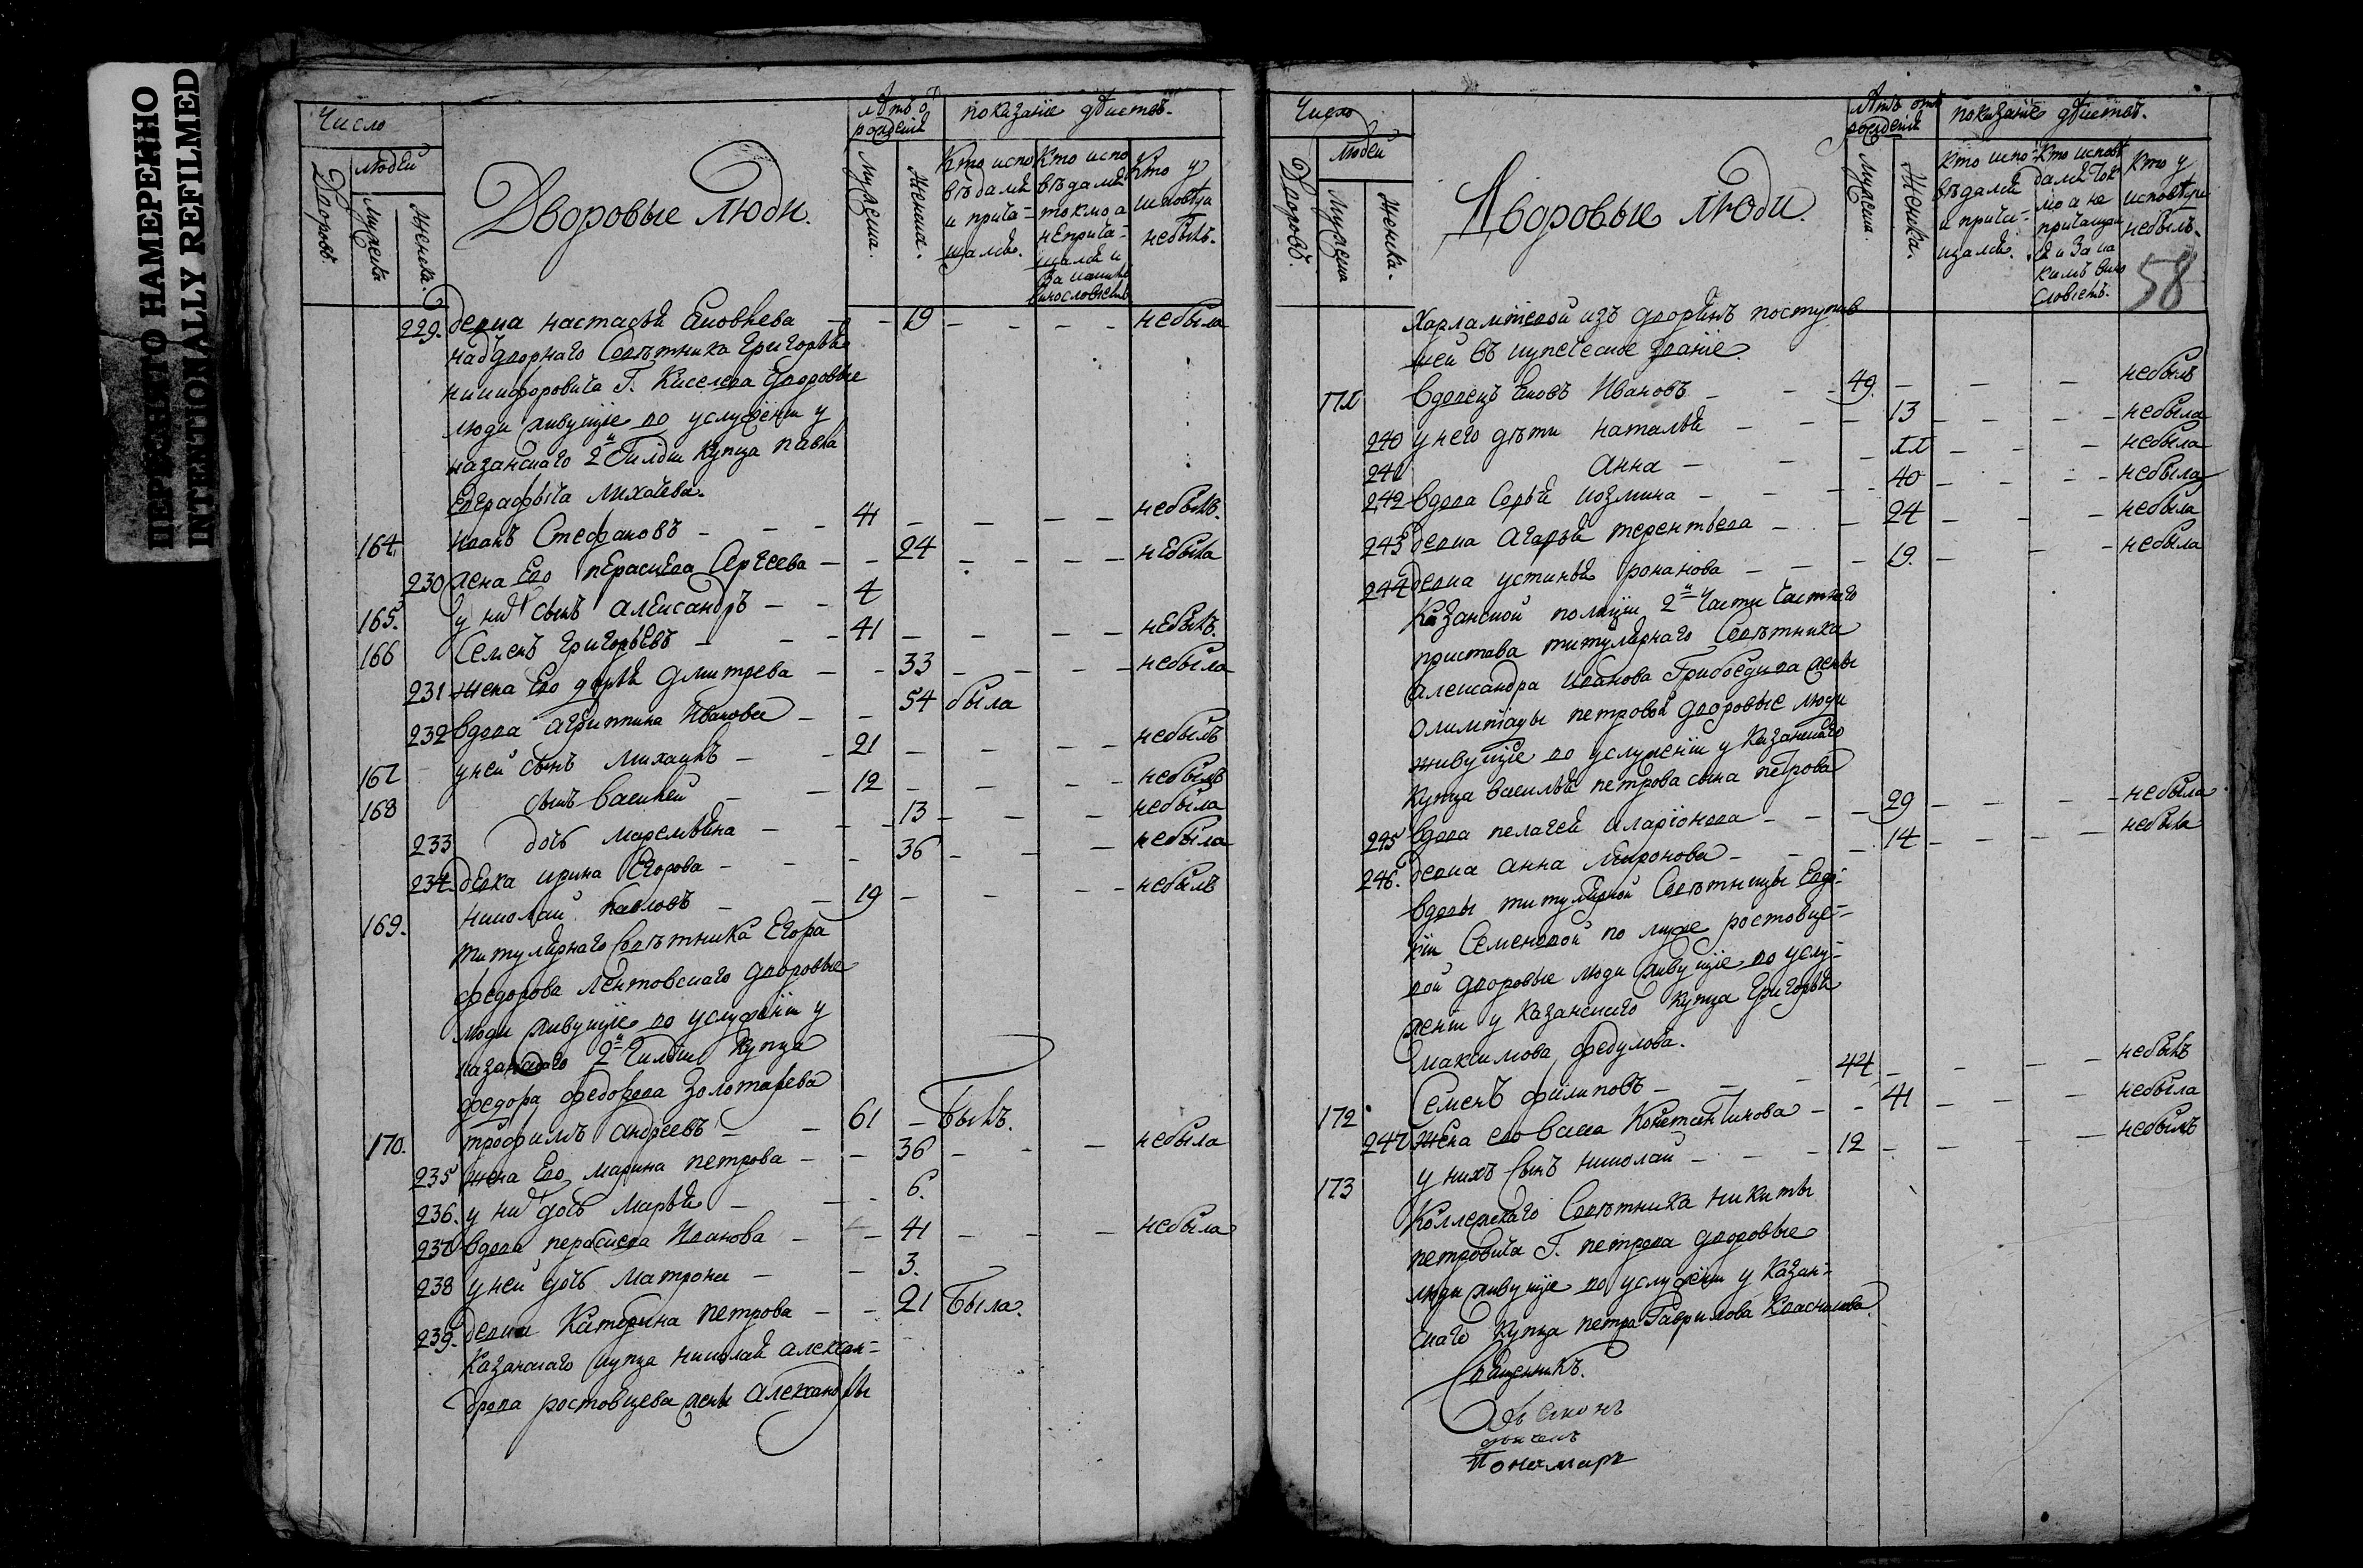 ПЕРЕСНЯТО НАМЕРЕННО
INTENTIONALLY REFILMED
Число
лѣтъ о
рождения
показание дѣйствъ.
Дворовъ.
людей
Мужеска
Женска.
Дворовые Люди.
Мужеска.
Женска.
Кто испо
вѣдался
и прича-
щался.
Кто испо
вѣдался
токмо а
неприча-
щался и
За каким
винословием
Кто у
исповѣди
небылъ.
229. девка настасья Яковлева - - 19 - - - - небыла
надворнаго Советника Григорья
никифоровича Г. Киселева дворовые
люди живущие во услужении у
казанскаго 2й Гилдии купца павла
Евграфыча Михаева.
164. иванъ Стефановъ - - - 41 - - - - небылъ.
230 жена Ево перасковья Сергеева - - 24 - - - - небыла
165. у них сынъ александръ - - 4
166 Семенъ григорьевъ - - - 41 - - - - небылъ.
231 жена Ево дарья дмитрева - - 33 - - - небыла
232 вдова агрипина Иванова - - 54 была
167 уней сынъ михаилъ - - 21 - - - - небылъ
168 сынъ василей - - 12 - - - - небылъ
233 дочь маремьяна - - - 13 - - - небыла
234. девка ирина Егорова - - - 36 - - - небыла
169. николай павловъ - - 19 - - - - небылъ
титулярнаго Советника Егора
федорова Лентовскаго дворовые
люди живущие во услужении у
казанскаго 2й Гилдии купца
федора федорова Золотарева
170. трофимъ андреевъ - - 61 - былъ.
235 жена Ево марина петрова - - 36 - - - небыла
236. у них дочь марья - - - 6.
237 вдова перасковья Иванова - - 41 - - - небыла
238 уней дочь матрона - - 3.
239. девка Катерина петрова - - 21 была.
Казанскаго купца николая алексан-
дрова ростовцева жены александры
Число
лѣтъ отъ
рождения
показание дѣйствъ.
58
Дворовъ.
людей
Мужеска
Женска.
Дворовые люди.
Мужеска.
Женска.
Кто испо-
вѣдался
и прича-
щался.
Кто исповѣ
дался ток
мо а не
причащал
ся и За ка
кимъ вино
словиемъ.
Кто у
исповѣди
небылъ.
Харлампиевой изъ дворянъ поступив
шей въ купеческое звание
171 вдовецъ Яковъ Ивановъ - - - 49. - - - небылъ
240 унего дѣти наталья - - - 13 - - - - небыла
241 анна - - - 11 - - - небыла
242 вдова Софья козмина - - - - 40 - - - - небыла
243 девка агафья терентьева - - - 24 - - - небыла
244 девка устинья романова - - - - 19. - - - небыла
Казанской полиции 2й Части Частнаго
пристава титулярнаго Советника
александра Иванова Грибоедива жены
олимпиады петровой дворовые люди
живущие во услужении у Казанскаго
купца василья петрова сына петрова
245 вдова пелагея иларионова - - - 29 - - - - небыла
246. девка анна миронова - - - 14 - - - - небыла
вдовы титулярной Советницы Евдо-
кии Семеновой по муже ростовце-
вой дворовые люди живущие во услу-
жении у казанскаго купца Григорья
максимова федулова.
172 Семенъ филиповъ - - - 44 - - - - небылъ
247 жена ево васса Константинова - - 41 - - - - небыла
173 у нихъ сынъ николай - - - 12 - - - - небылъ
Коллежскаго Советника никиты
петровича Г. петрова дворовые
люди живущие во услужении у Казан-
скаго купца петра Гаврилова Квасникова
Священникъ.
Дьяконъ
дьячекъ
Пономарь